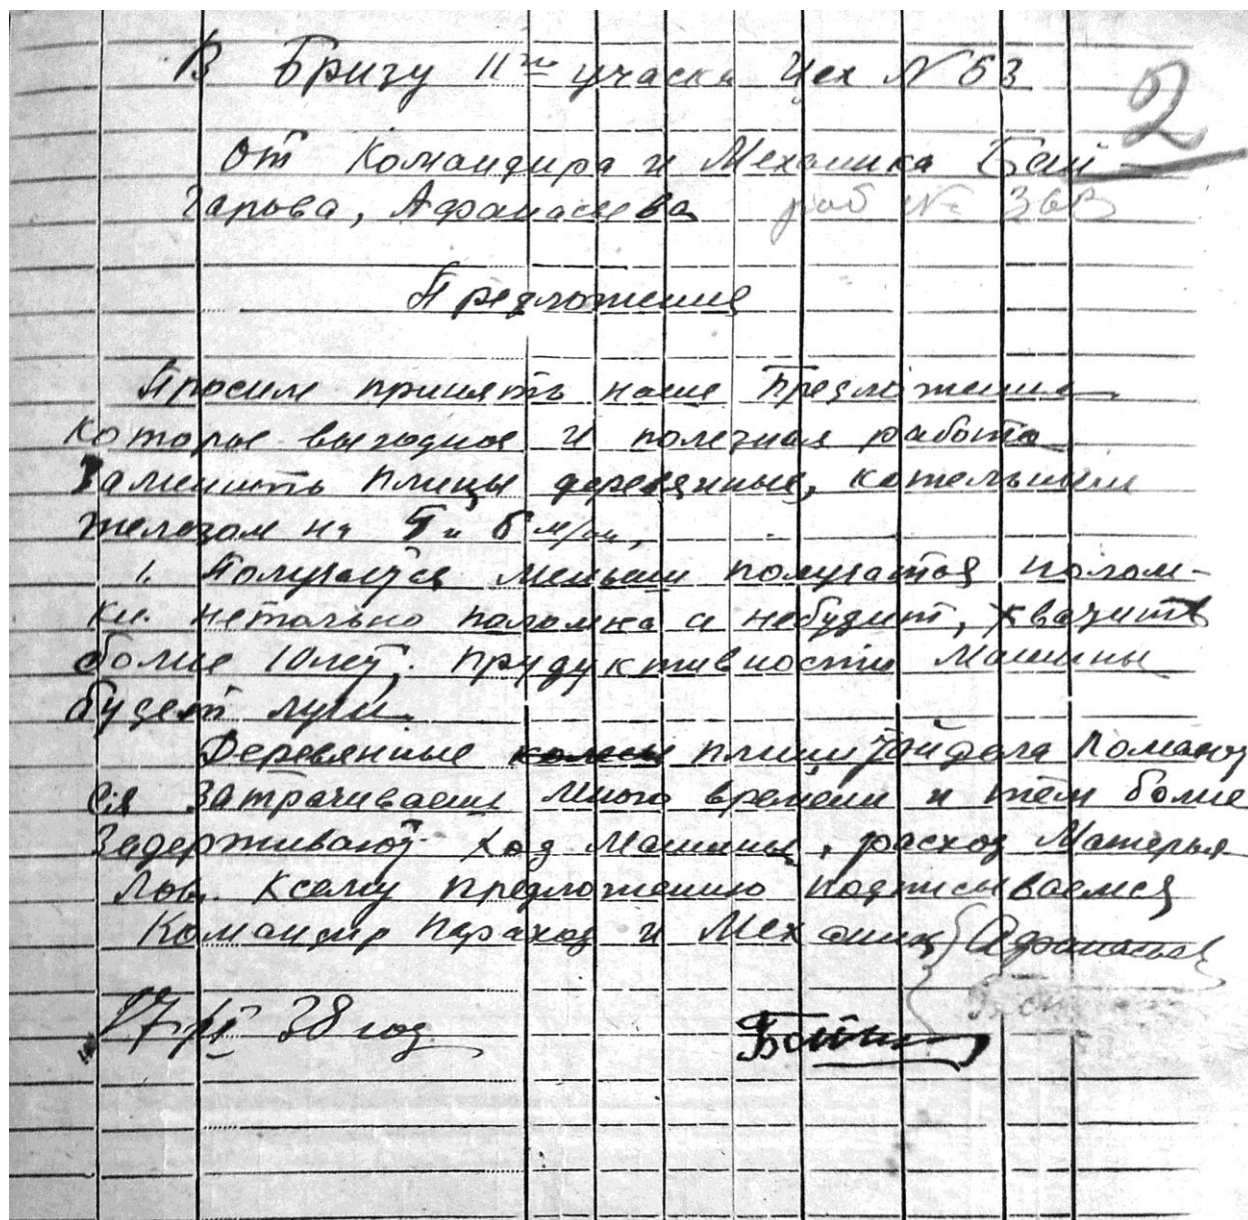 В Бризу IIго участка Цех N 53
2
От Командира и Механика Бай-
гарова, Афанасьева раб №
Предложения
Просим принять наше Предложения
которые выгодная и полезная работа
Заменить плицы деревянные, котельными
железом на 5 и 6 м/м,
1. Получается меньше получатся полом-
ки. нетолько поломка а небудит, хватит
более 10 лет. придуктивности Машины
будет лучи.
Деревянные плици Ломают
ся Затрачиваем много времени и тем более
Задерживают ход Машины, расход Матерья
лов. Ксему предложению подписываемся
Командир параход и Механик Афанасьев
17/ 38 год